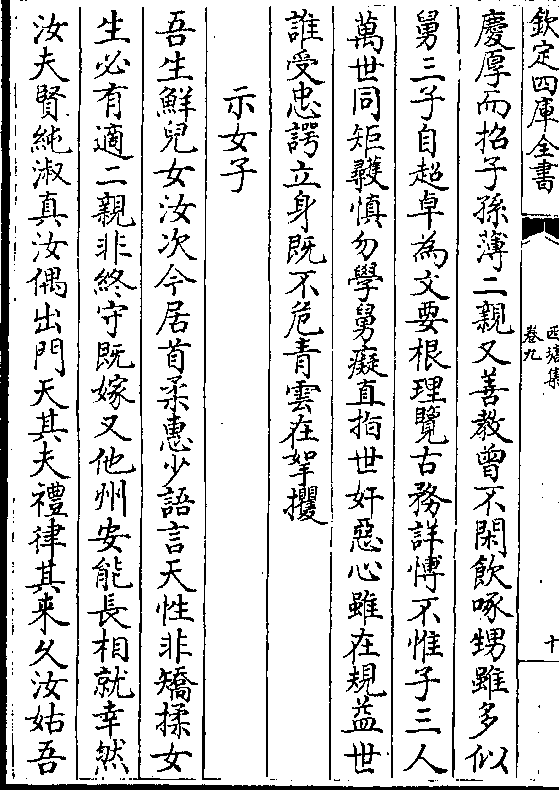 欽定四庫全書
西塘集
卷九
十
慶厚而招子孫薄二親又善教曾不閑飲啄甥雖多似
舅三子自超卓為文要根理覽古務詳慱不惟子三人
萬世同矩矱慎勿學舅癡直指世奸惡心雖在規益世
誰受忠諤立身既不危青雲在挐攫
示女子
吾生鮮兒女汝次今居首柔惠少語言天性非矯揉女
生必有適二親非終守既嫁又他州安能長相就幸然
汝夫賢純淑真汝偶出門天其夫禮律其来久汝姑吾